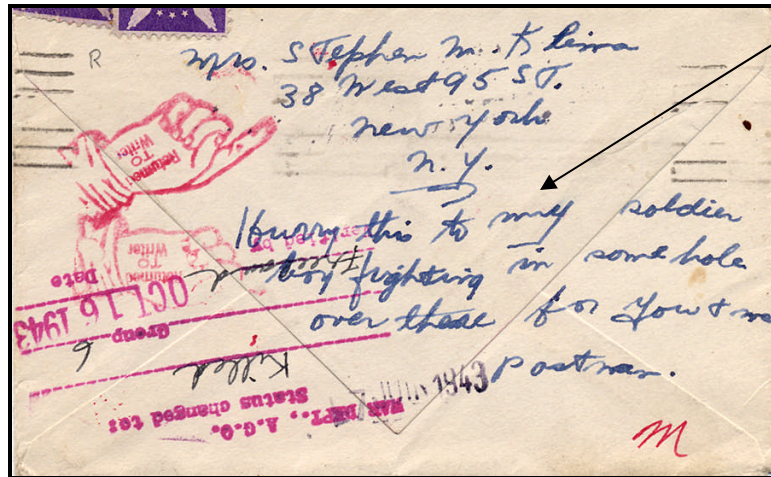 R
Mrs. Stephen M. Klima
38 West 95 ST.
new york
N. Y.
Hurry this to my soldier
boy fighting in some hole
over there for you & me
Postman.
M
Returned
TO
Writer
Returned
TO
Writer
Verified by
Date
OCT 16 1943
Group 6
Killed
WAR DEPT., A.G.O.
Status changed to:
1943